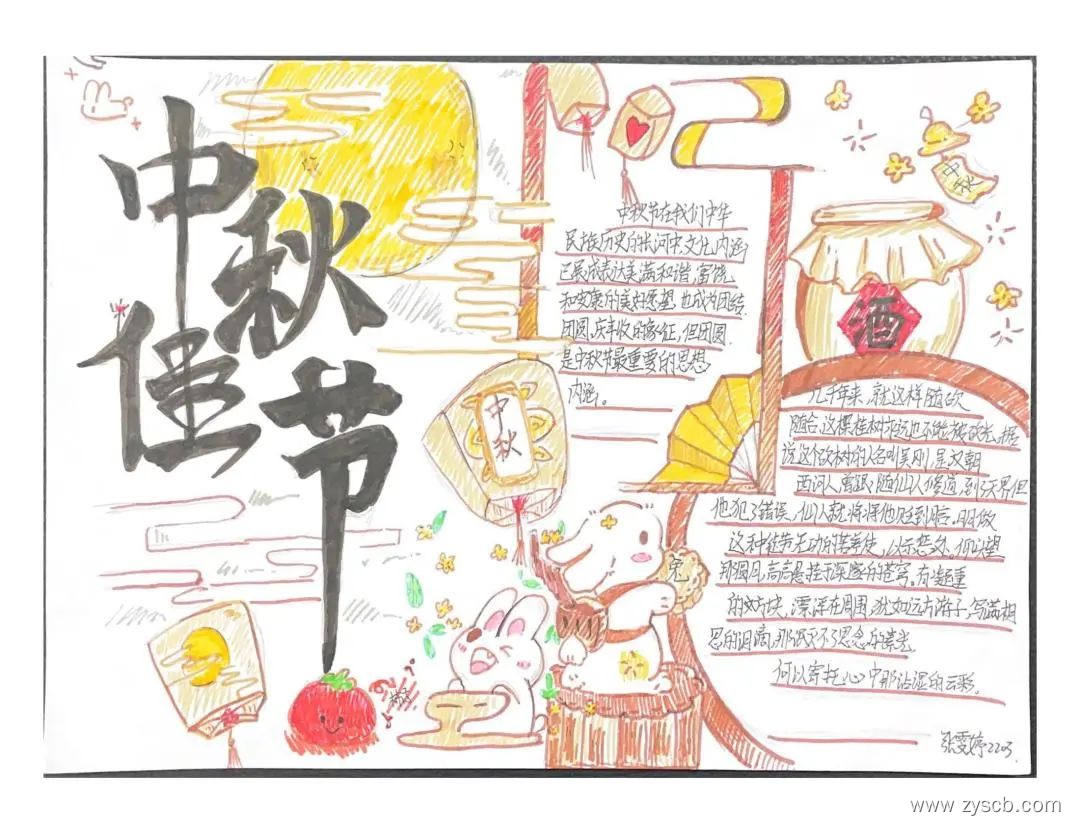 中秋佳节
中秋
酒
中秋
兔
中秋节在我们中华
民族历史的长河中,文化内涵
已展成表达美满和谐,富饶
和安康的美好愿望.也成为团结
团圆、庆丰收的象征,但团圆
是中秋节最重要的思想
内涵。
几千年来,就这样随砍
随合,这棵桂树永远也不能被砍光,据
说这个砍树的人名叫吴刚,是汉朝
西河人,曾跟随仙人修道,到了天界但
他犯了错误,仙人就将他贬到月宫,日日做
这种徒劳无功的苦差使,以示惩处.仰望
那圆月高高悬挂于深邃的苍穹,有凝重
的云块,漂浮在周围,犹如远方游子,写满相
思的泪滴,那不了思念的光
何以寄托心中那沾湿的云彩.
张雯婷2203.
www.zyscb.com